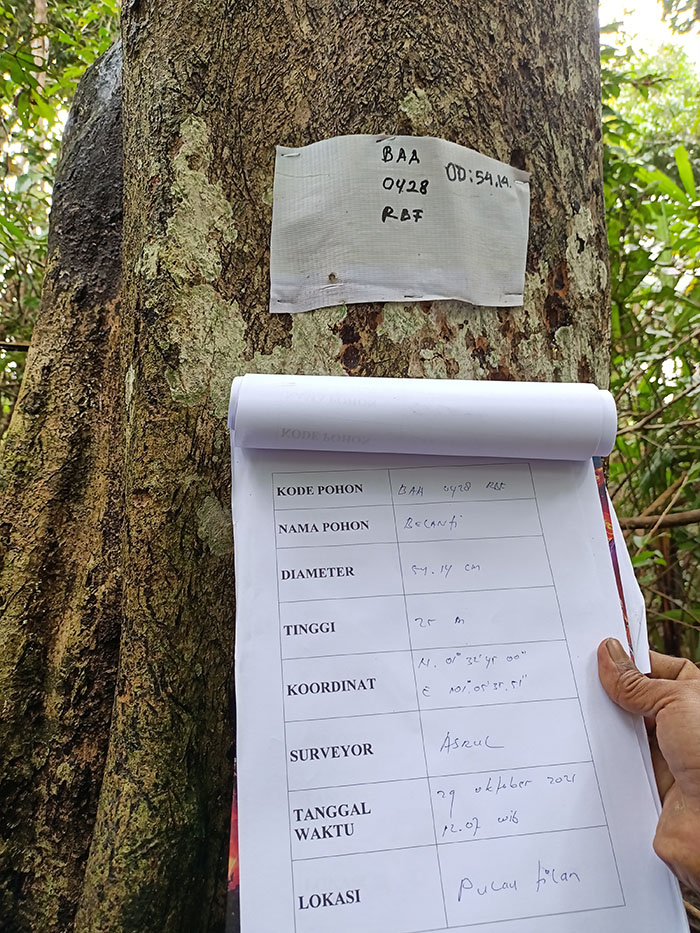 BAA 00:54.14.
0428
RBF
KODE POHON BAA 0428 RBF
NAMA POHON BELANTi
DIAMETER 54.14 cm
TINGGI 25 m
KOORDINAT N. 01° 32' 45 00"
E 101° 05' 35.51"
SURVEYOR ASRUL
TANGGAL 29 oktober 2021
WAKTU 12.07 wib
LOKASI Pulau tilan